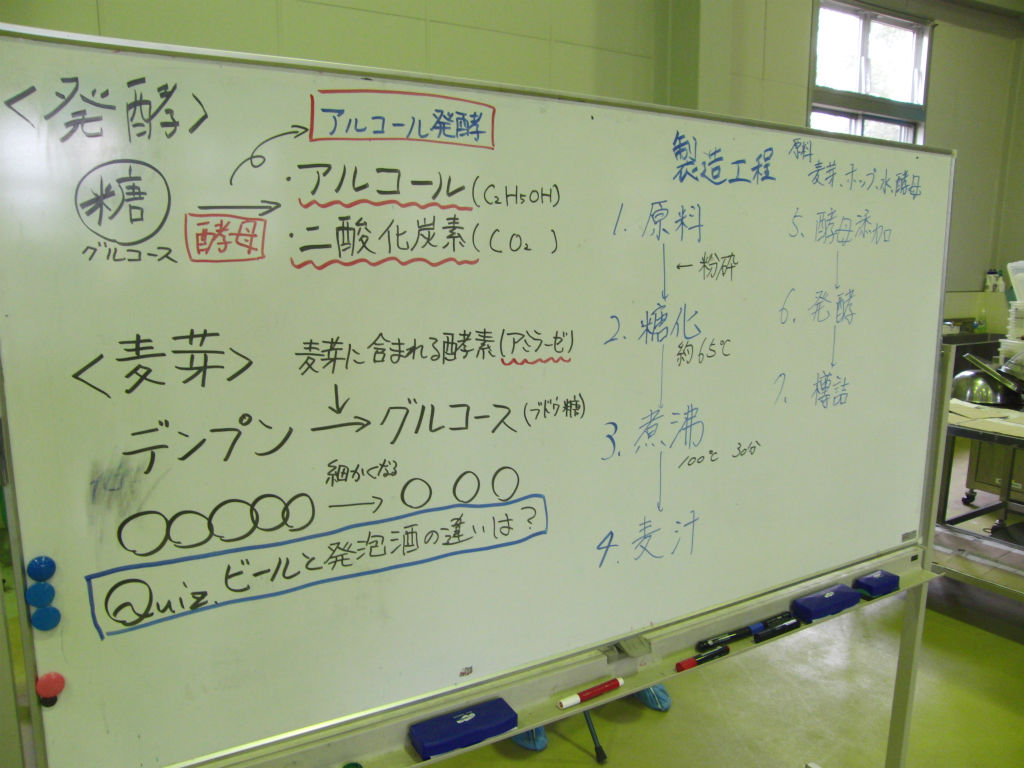 <発酵>
アルコール発酵
糖
グルコース
酵母
・アルコール(C₂H₅OH)
・二酸化炭素(CO₂)
<麦芽>
麦芽に含まれる酵素(アミラーゼ)
デンプン → グルコース(ブドウ糖)
細かくなる
Quiz. ビールと発泡酒の違いは?
製造工程
原料
麦芽、ホップ、水、酵母
1. 原料
←粉砕
2. 糖化
約65℃
3. 煮沸
100℃ 30分
4. 麦汁
5. 酵母添加
6. 発酵
7. 樽詰